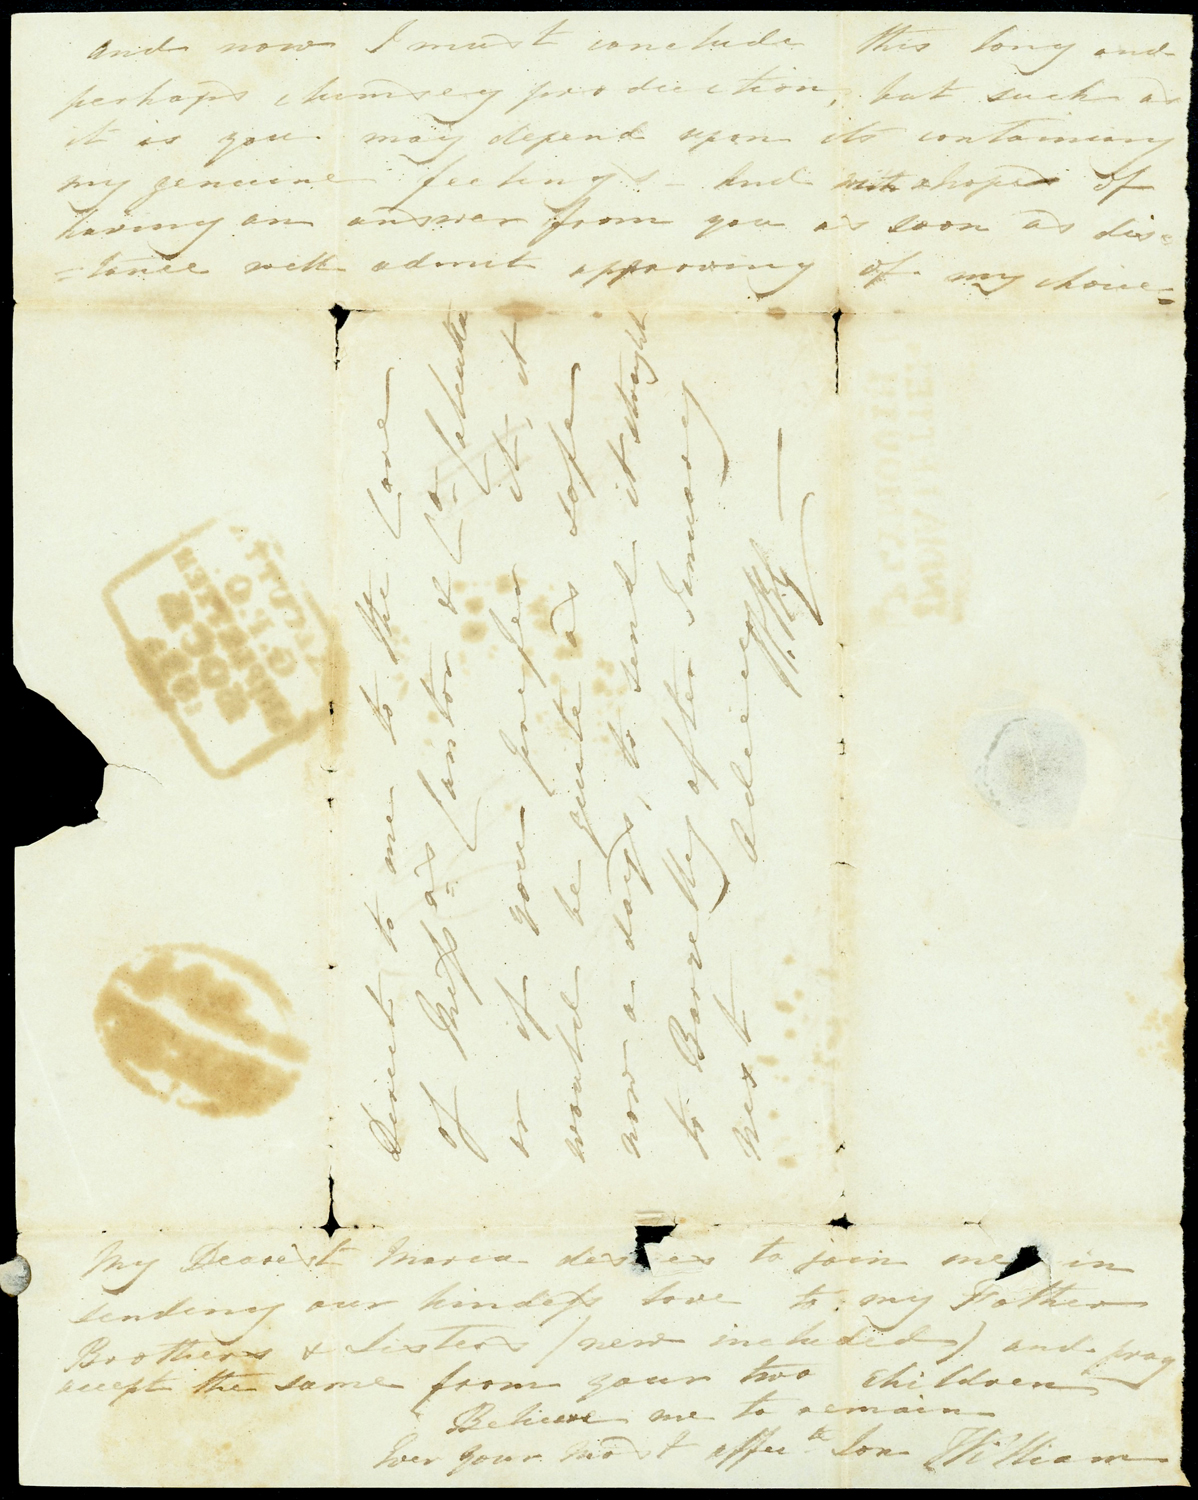 and now I must conclude this long and
perhaps clumsey production, but such as
it is you may depend upon its containing
my genuine feelings - And with hopes of
having an answer from you as soon as dis=
=tance will admit approving of my choice=
Direct to me to the Care
of Mess.rs Cantor & Co.
or if you prefer it, it
would be quite as safe
now a days, to send it straight
to Bareilly after January
next Adieu
W. Hy
My Dearest Maria desires to join me in
sending our kindest love to my Father
Brothers & Sisters (new included) and pray
accept the same from your two children
Believe me to remain
Ever your most affect.te Son William
INDIA LETTER
FALMOUTH